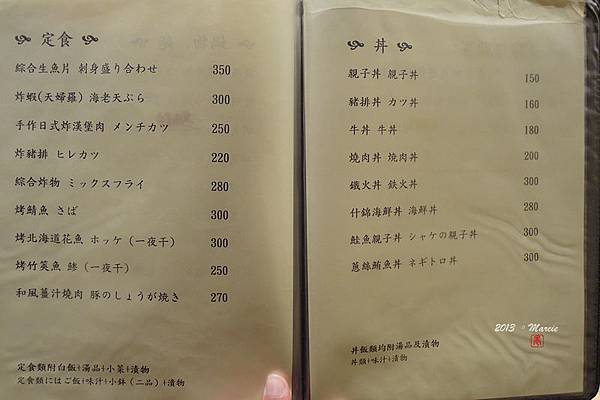 定食
綜合生魚片 刺身盛り合わせ 350
炸蝦(天婦羅) 海老天ぷら 300
手作日式炸漢堡肉 メンチカツ 250
炸豬排 ヒレカツ 220
綜合炸物 ミックスフライ 280
烤鯖魚 さば 300
烤北海道花魚 ホッケ (一夜干) 300
烤竹筴魚 鯵 (一夜干) 250
和風薑汁燒肉 豚のしょうが焼き 270
定食類附白飯+湯品+小菜+漬物
定食類にはご飯+味汁+小鉢(二品)+漬物
丼
親子丼 親子丼 150
豬排丼 カツ丼 160
牛丼 牛丼 180
燒肉丼 焼肉丼 200
鐵火丼 鉄火丼 300
什錦海鮮丼 海鮮丼 280
鮭魚親子丼 シャケの親子丼 300
蔥絲鮪魚丼 ネギトロ丼 300
丼飯類均附湯品及漬物
丼類+味汁+漬物
2013 * Marcie